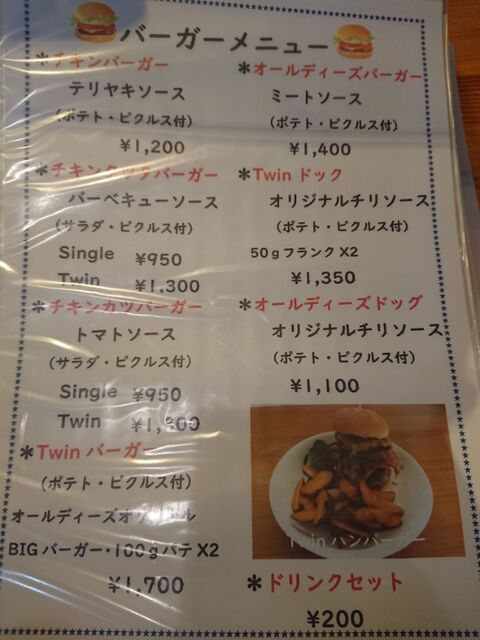 バーガーメニュー
*チキンバーガー
テリヤキソース
(ポテト・ピクルス付)
¥1,200
*チキンカツバーガー
バーベキューソース
(サラダ・ピクルス付)
Single ¥950
Twin ¥1,300
*チキンカツバーガー
トマトソース
(サラダ・ピクルス付)
Single ¥950
Twin ¥1,300
*Twinバーガー
(ポテト・ピクルス付)
オールディーズオリジナル
BIGバーガー・100gパテX2
¥1,700
*オールディーズバーガー
ミートソース
(ポテト・ピクルス付)
¥1,400
*Twinドック
オリジナルチリソース
(ポテト・ピクルス付)
50gフランクX2
¥1,350
*オールディーズドッグ
オリジナルチリソース
(ポテト・ピクルス付)
¥1,100
Twinハンバーガー
*ドリンクセット
¥200